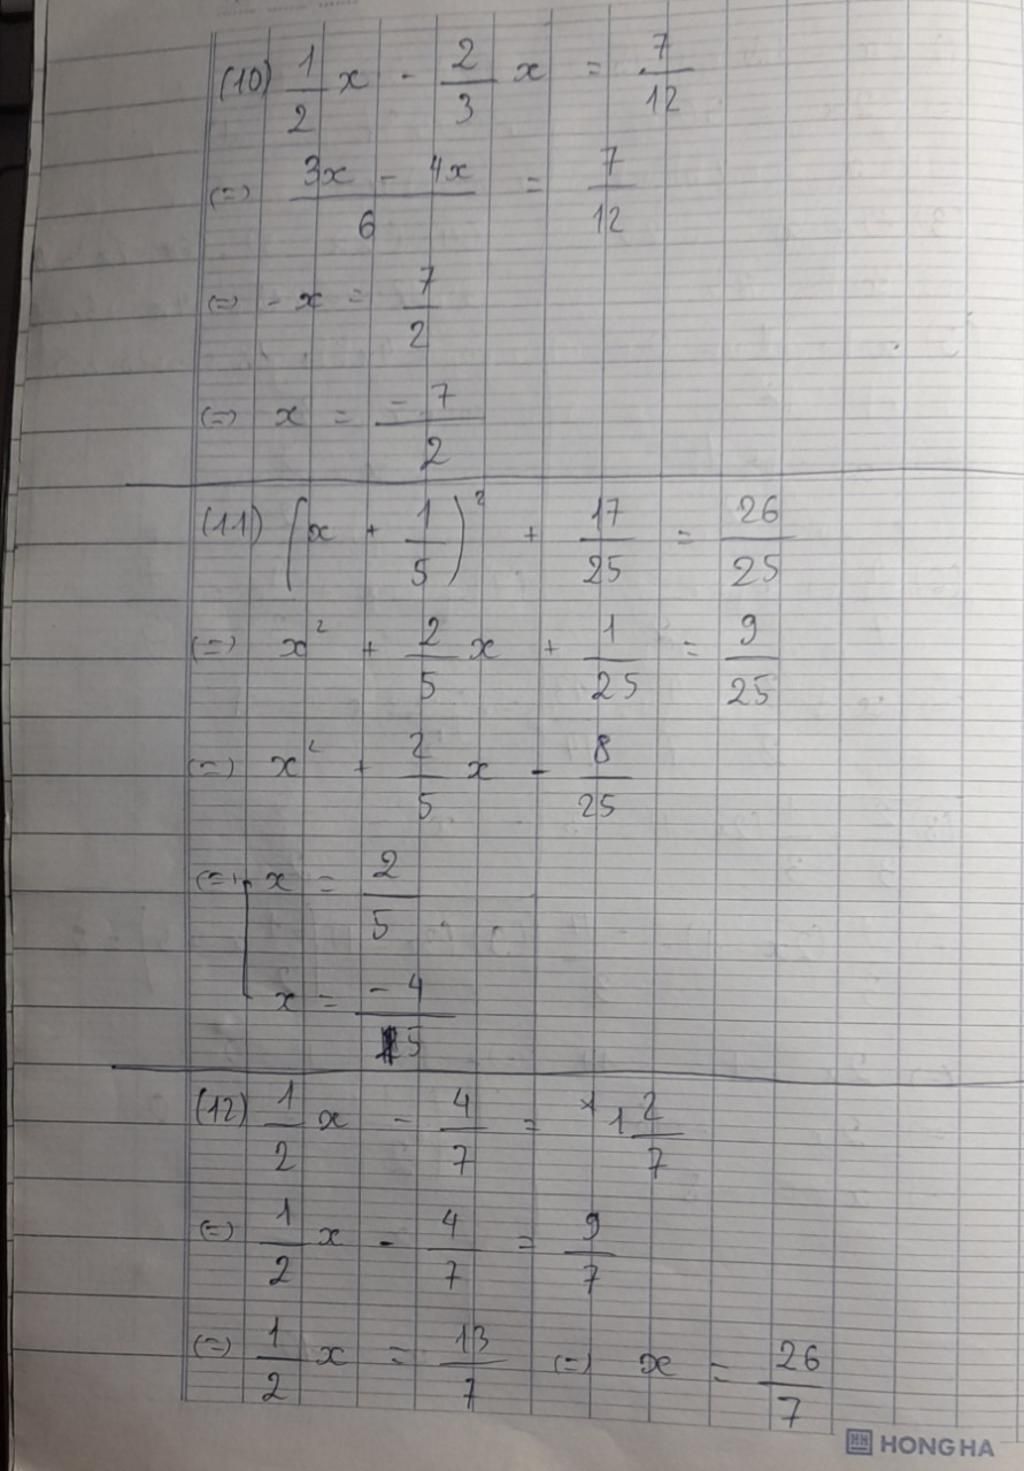 (10) 1/2 x - 2/3 x = 7/12
(=) (3x - 4x)/6 = 7/12
(=) - x = 7/2
(=) x = -7/2
(11) (x + 1/5)² + 17/25 = 26/25
(=) x² + 2/5 x + 1/25 = 9/25
(=) x² + 2/5 x - 8/25
(=) x = 2/5
x = -4/5
(12) 1/2 x - 4/7 = 1 2/7
(=) 1/2 x - 4/7 = 9/7
(=) 1/2 x = 13/7 (=) x = 26/7
HONG HA